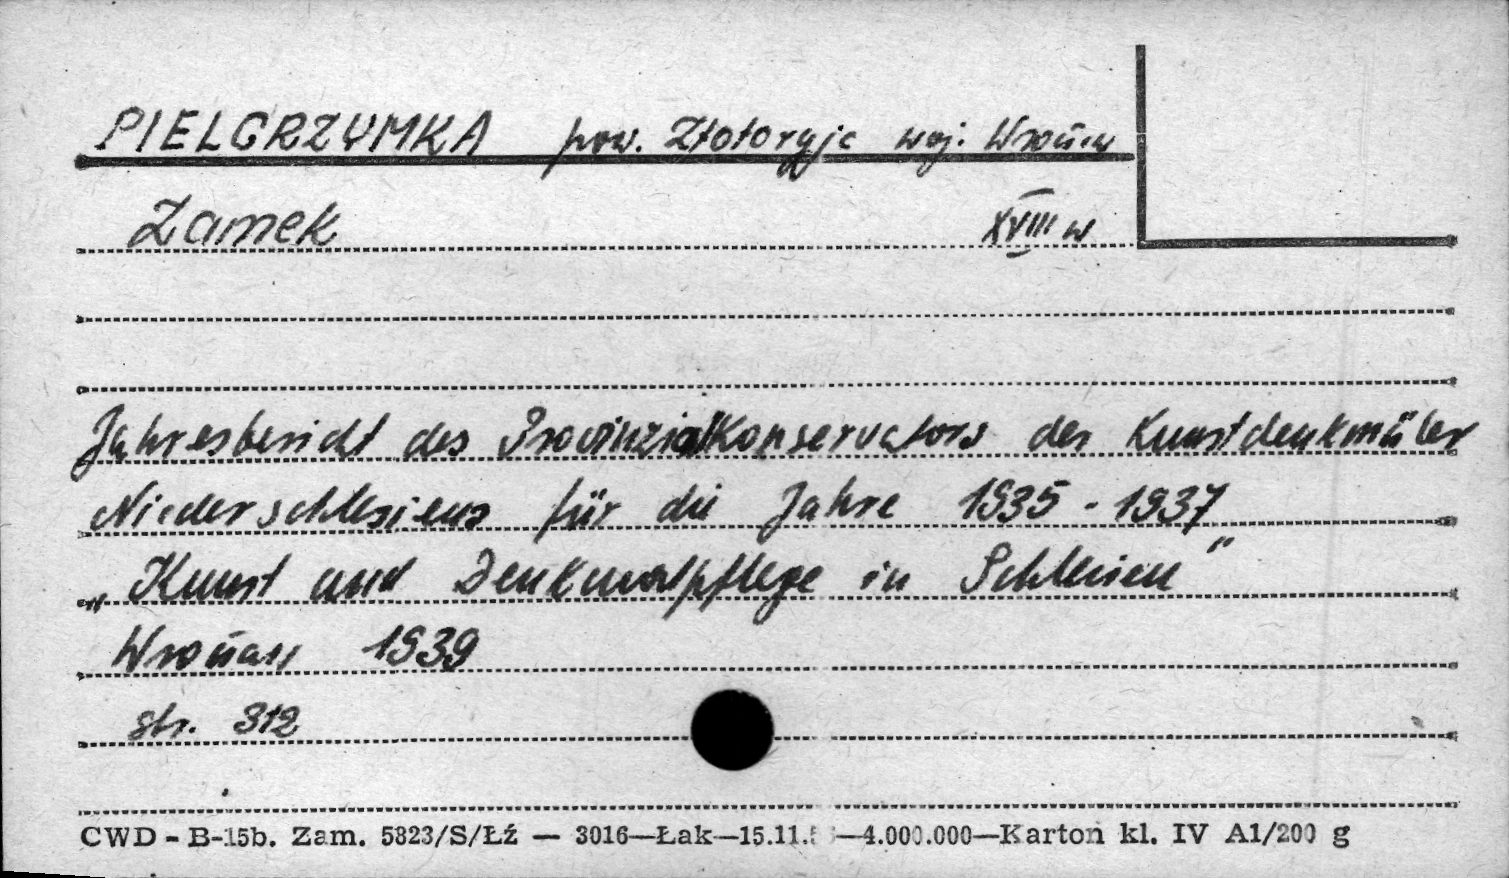 PIELGRZYMKA pow. Złotoryja woj. Wrocław
Zamek XVIII w
Jahresbericht des Provinzialkonservators der Kunstdenkmäler
Niederschlesiens für die Jahre 1935 - 1937
„Kunst und Denkmalpflege in Schlesien"
Wrocław 1939
str. 312
CWD - B-15b. Zam. 5823/S/Łź — 3016—Łak—15.11. —4.000.000—Karton kl. IV A1/200 g